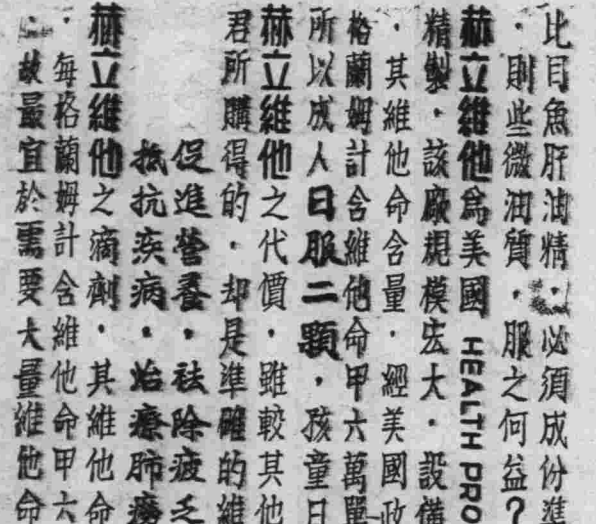 比目魚肝油精，必須成份準
，則些微油質，服之何益？
赫立維他為美國 HEALTH PRO
精製．該廠規模宏大．設備
．其維他命含量．經美國政
格蘭姆計含維他命甲六萬單
所以成人日服二顆，孩童日
赫立維他之代價，雖較其他
君所購得的．却是準確的維
促進營養，祛除疲乏
抵抗疾病，治療肺癆
赫立維他之滴劑，其維他命
．每格蘭姆計含維他命甲六
故最宜於需要大量維他命